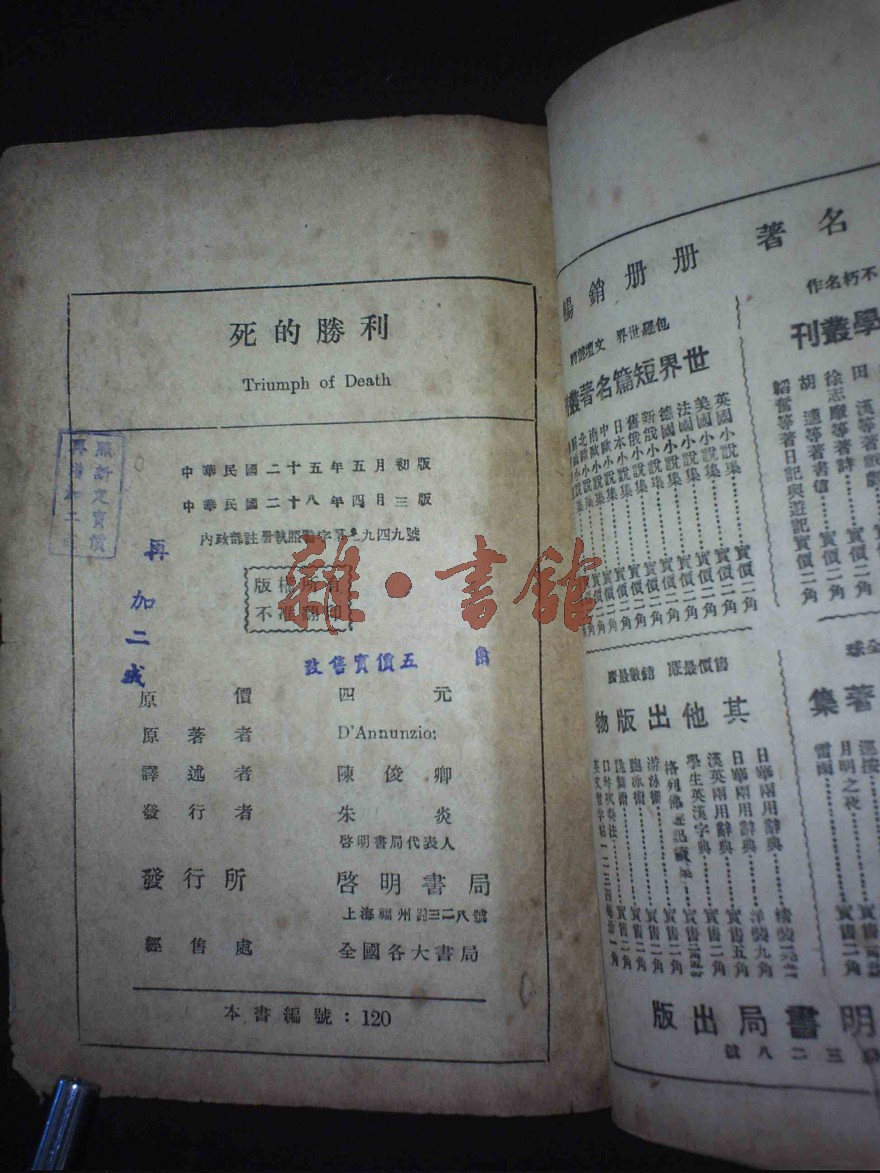 死的勝利
Triumph of Death
中華民國二十五年五月初版
中華民國二十八年四月三版
內政部註冊執照警字第 九四九號
版權所有
不准翻印
雜·書館
照新定實價
再 加 二 成
再加二成
改售實價五 角
原價 四元
原著者 D'Annunzio:
譯述者 陳俊卿
發行者 朱炎
啓明書局代表人
發行所 啓明書局
上海福州路三二八號
經售處 全國各大書局
本書編號：120
名著
冊冊銷暢
包羅世界 文壇
世界短篇名著叢
英國小說集 實價二角
美國小說集 實價二角
法國小說集 實價二角
德國小說集 實價二角
新俄小說集 實價二角
舊俄小說集 實價二角
日本小說集 實價二角
中歐小說集 實價二角
南歐小說集 實價二角
北歐小說集 實價二角
不朽名作
學叢刊
田漢等著戲劇
徐志摩等著詩 實價二角
胡適等著書信 實價二角
韜奮等著日記與遊記 實價二角
售價最廉 銷數最廣
其他出版物
日華兩用辭典
日華兩用辭典 洋裝九角
漢英兩用辭典 實售五角
學生英漢字典 實售二角
格列佛遊記
游泳術 實售二角
跑冰術 實售二角
跳舞術 實售二角
口琴吹奏法 實售二角
全球
著集
巡按
月明之夜
雷雨 實售二角
明書局出版
三二八號